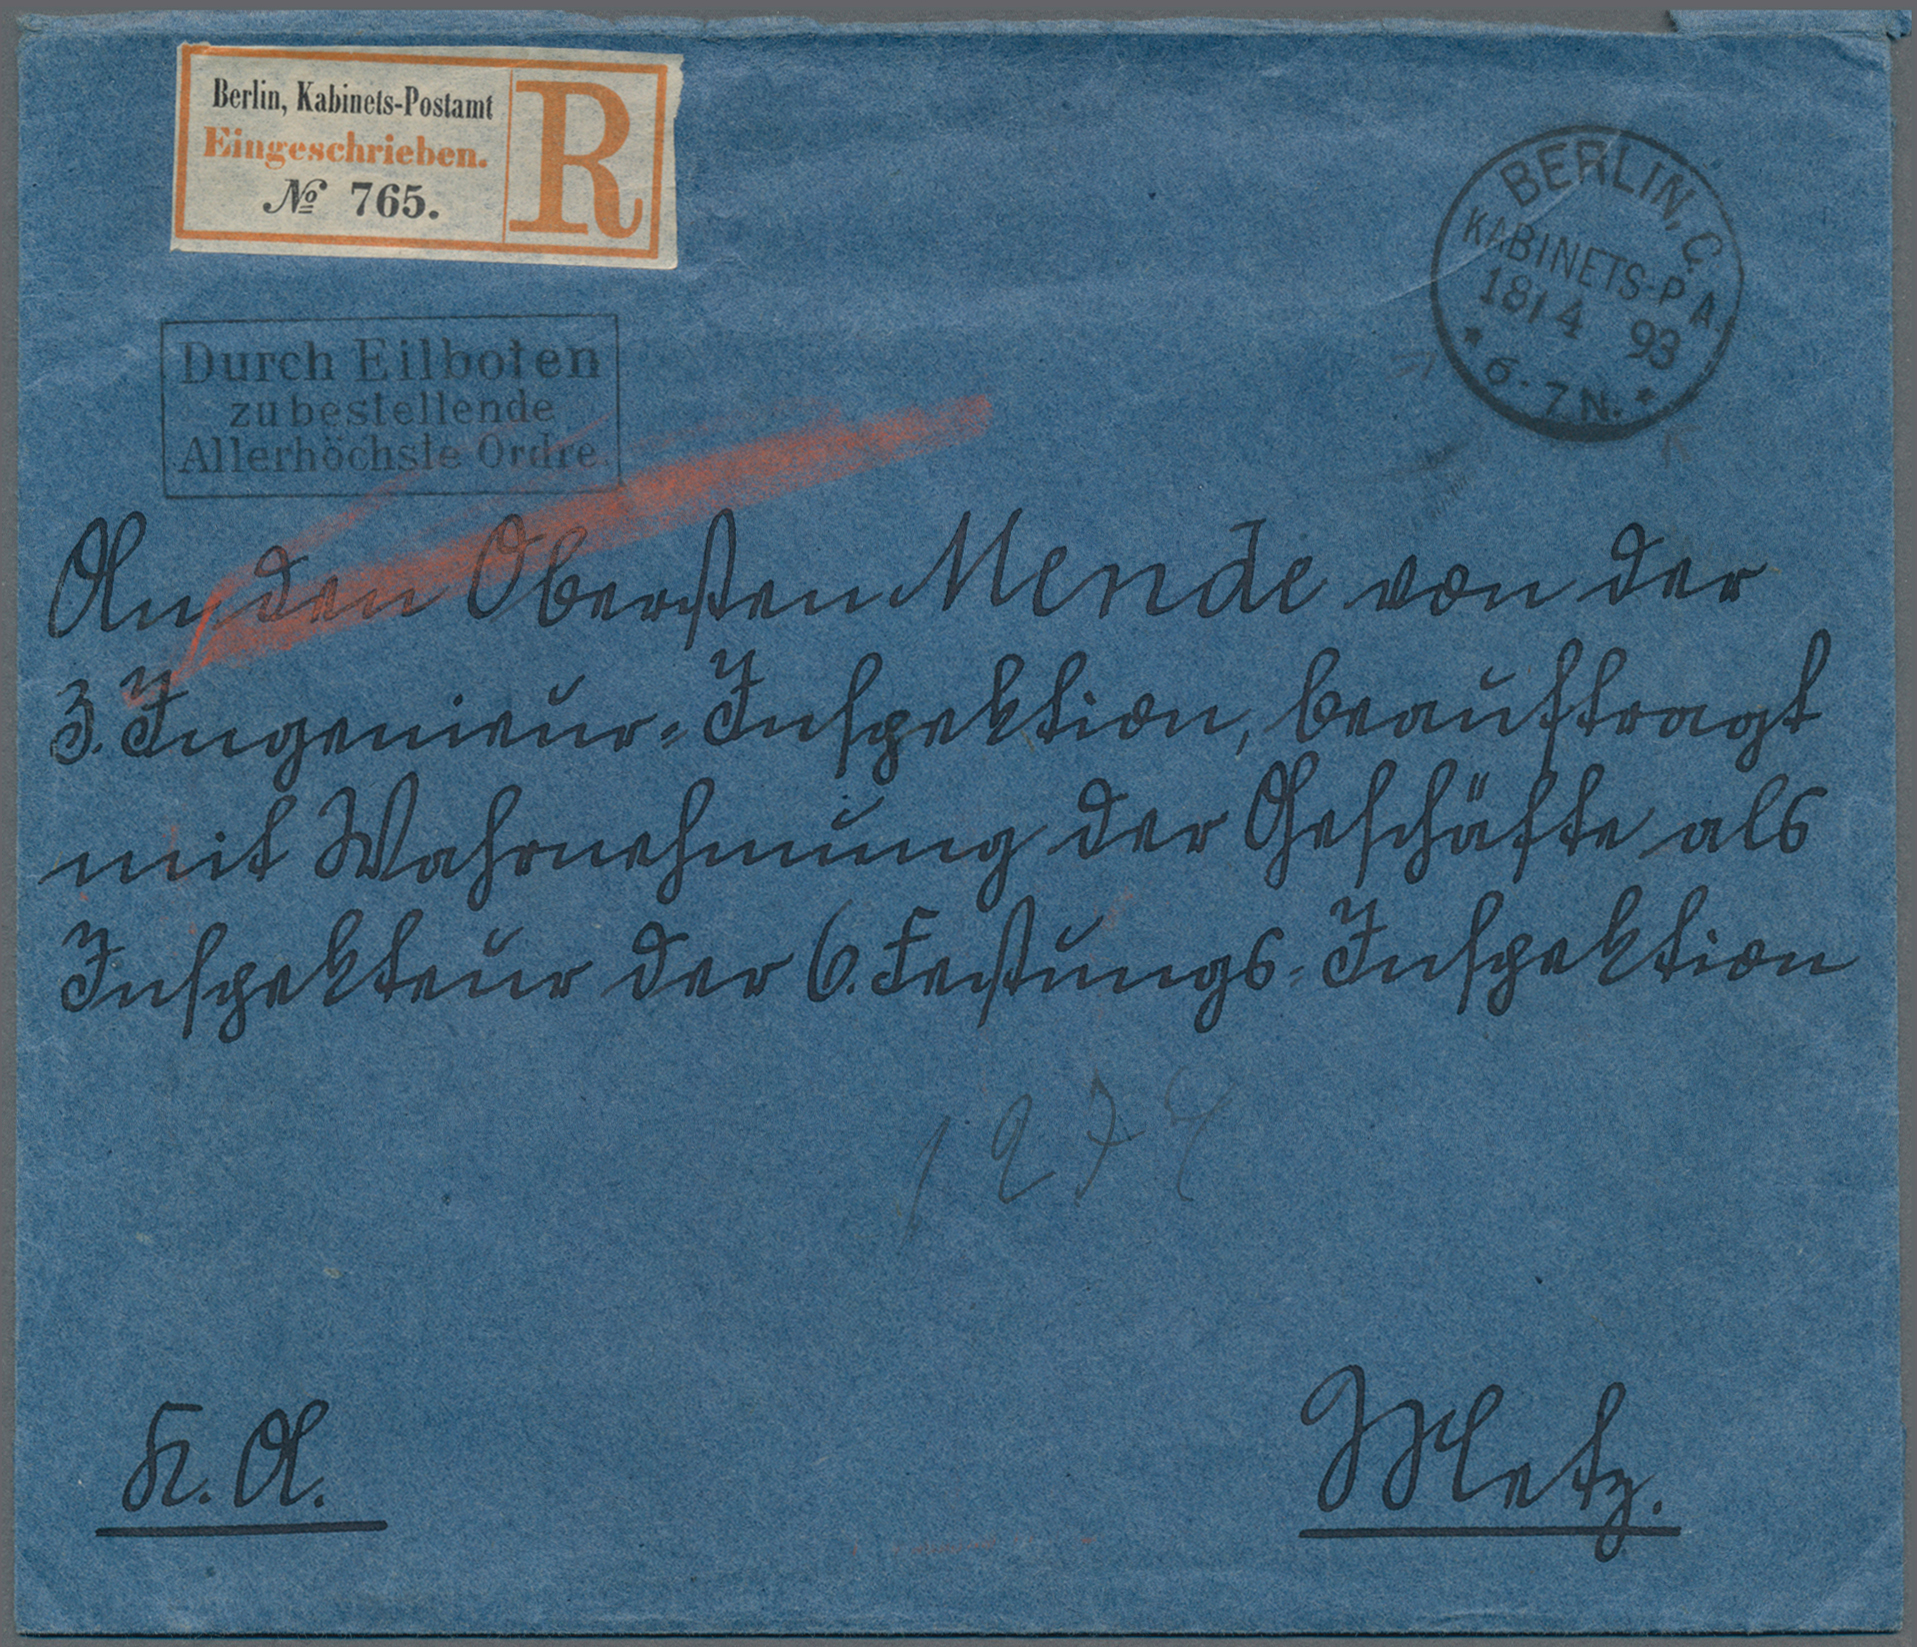 Berlin, Kabinets-Postamt
Eingeschrieben.
№ 765.
R
BERLIN, C.
KABINETS-P.A.
18/4 93
* 6-7N. *
Durch Eilboten
zu bestellende
Allerhöchste Ordre.
An den Obersten Mende von der
3. Ingenieur-Inspektion, beauftragt
mit Wahrnehmung der Geschäfte als
Inspekteur der 6. Festungs-Inspektion
K. A.
Metz.